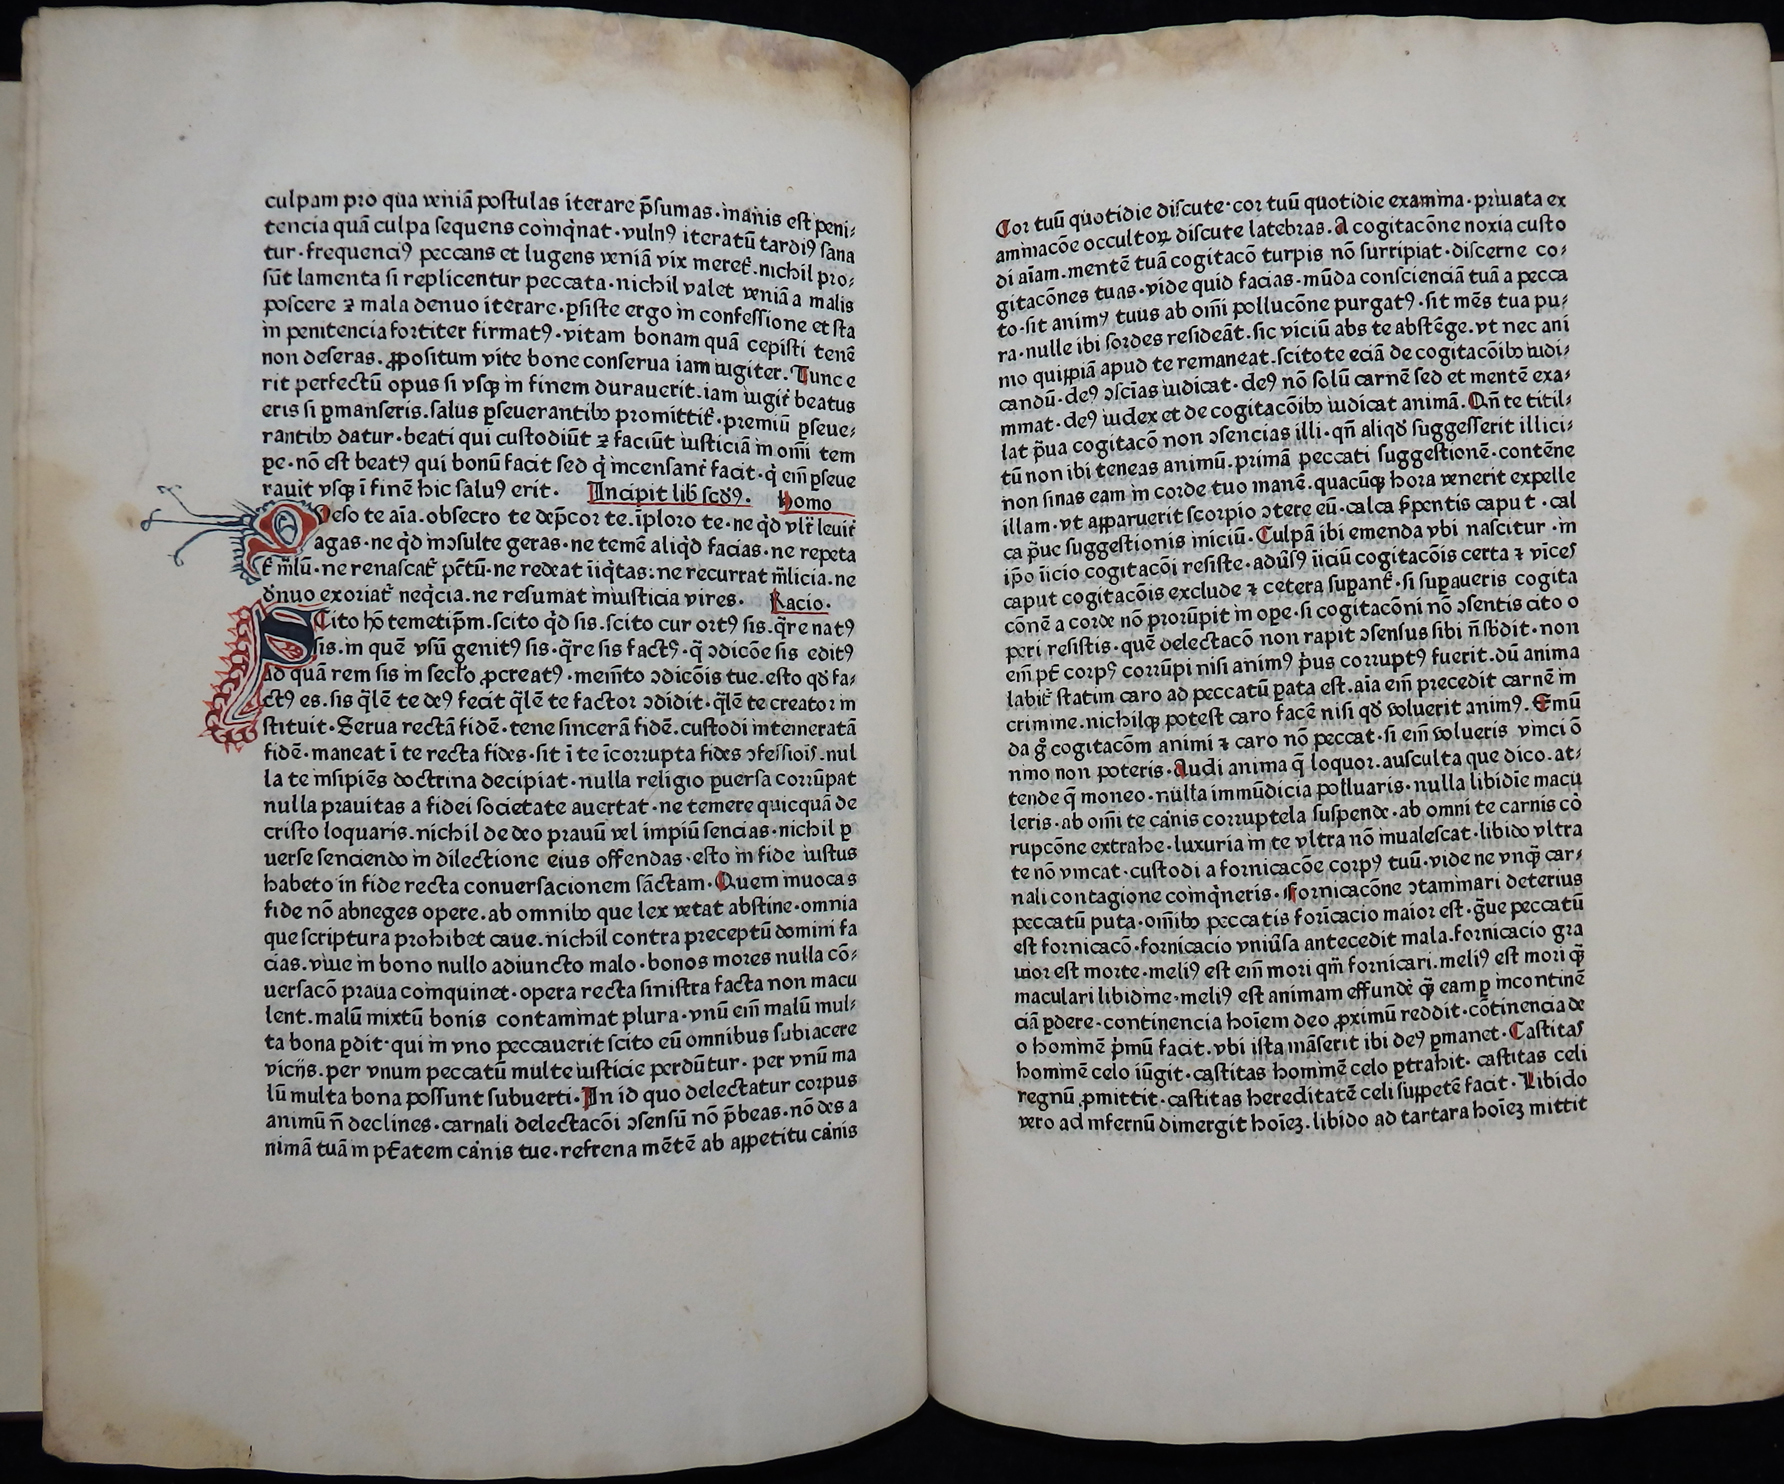 culpam pro qua veniā poſtulas iterare p̄ſumas·inanis eſt peni⸗
tencia quā culpa ſequens coinq̇nat·vulnꝰ iteratū tardiꝰ ſana
tur·frequenciꝰ peccans et lugens veniā vix meret᷑.nichil pro⸗
ſūt lamenta ſi replicentur peccata·nichil valet veniā a malis
poſcere ⁊ mala denuo iterare·ꝑſiſte ergo in confeſſione et ſta
in penitencia fortiter firmatꝰ·vitam bonam quā cepiſti tenē
non deſeras.ꝓpoſitum vite bone conſerua iam iugiter.Tunc e
rit perfectū opus ſi vſqꝫ in finem durauerit.iam iugit᷑ beatus
eris ſi ꝑmanſeris.ſalus ꝑſeuerantibꝫ promittit᷑·premiū ꝑſeue⸗
rantibꝫ datur·beati qui cuſtodiūt ⁊ faciūt iuſticiā in om̄i tem
pe·nō eſt beatꝰ qui bonū facit ſed q̇ inceſſant᷑ facit·q̇ em̄ ꝑſeue
rauit vſqꝫ ī finē hic ſaluꝰ erit· Incipit lib̄ ſcd̄ꝰ. Homo
Deſo te aīa.obſecro te dep̄cor te.īploro te·ne q̇d vlt᷑ leuit᷑
agas·ne q̇d inↄſulte geras·ne temē aliq̇d facias·ne repeta
t᷑ m̄lū·ne renaſcat᷑ pc̄tū·ne redeat īiq̇tas:ne recurrat m̄licia·ne
d̄nuo exoriat᷑ neq̇cia.ne reſumat iniuſticia vires· Racio·
SCito hō temetip̄m.ſcito q̇d ſis.ſcito cur ortꝰ ſis.q̄re natꝰ
ſis.in quē vſū genitꝰ ſis·q̄re ſis factꝰ·q̄ ↄdicōe ſis editꝰ
ad quā rem ſis in ſecl̄o ꝓcreatꝰ·mem̄to ↄdicōis tue.eſto qd̄ fa⸗
ctꝰ es.ſis q̄lē te deꝰ fecit q̄lē te factor ↄdidit·q̄lē te creator in
ſtituit·Serua rectā fidē·tene ſincerā fidē.cuſtodi intemeratā
fidē·maneat ī te recta fides·ſit ī te īcorrupta fides ↄfeſſiois̄.nul
la te inſipiēs doctrina decipiat·nulla religio ꝑuerſa corrūpat
nulla prauitas a fidei ſocietate auertat·ne temere quicquā de
criſto loquaris.nichil de deo prauū vel impiū ſencias·nichil ꝑ
uerſe ſenciendo in dilectione eius offendas·eſto in fide iuſtus
habeto in fide recta conuerſacionem ſāctam·Quem inuocas
fide nō abneges opere.ab omnibꝫ que lex vetat abſtine·omnia
que ſcriptura prohibet caue.nichil contra preceptū domini fa
cias.viue in bono nullo adiuncto malo·bonos mores nulla cō⸗
uerſacō praua coinquinet·opera recta ſiniſtra facta non macu
lent.malū mixtū bonis contaminat plura·vnū em̄ malū mul⸗
ta bona ꝑdit·qui in vno peccauerit ſcito eū omnibus ſubiacere
vicijs.per vnum peccatū multe iuſticie perdūtur·per vnū ma
lū multa bona poſſunt ſubuerti·In id quo delectatur corpus
animū n̄ declines·carnali delectacōi ↄſenſū nō p̄beas·nō des a
nimā tuā in pt̄atem caṙnis tue·refrena mētē ab appetitu caṙnis
Cor tuū quotidie diſcute·cor tuū quotidie examina·priuata ex
aminacōe occultoꝝ diſcute latebras.A cogitacōne noxia cuſto
di aīam.mentē tuā cogitacō turpis nō ſurripiat·diſcerne co⸗
gitacōnes tuas·vide quid facias·mūda conſcienciā tuā a pecca
to·ſit animꝰ tuus ab om̄i pollucōne purgatꝰ·ſit mēs tua pu⸗
ra·nulle ibi ſordes reſideāt.ſic viciū abs te abſtēge.vt nec ani
mo quippiā apud te remaneat.ſcito te eciā de cogitacōibꝫ iudi⸗
candū·deꝰ ↄſcīas iudicat·deꝰ nō ſolū carnē ſed et mentē exa⸗
minat·deꝰ iudex et de cogitacōibꝫ iudicat animā.Qn̄ te titil⸗
lat p̄ua cogitacō non ↄſencias illi·qn̄ aliqd̄ ſuggeſſerit illici⸗
tū non ibi teneas animū.primā peccati ſuggeſtionē·contēne
non ſinas eam in corde tuo manē.quacūqꝫ hora venerit expelle
illam·vt apparuerit ſcorpio ↄtere eū·calca ẜpentis caput·cal
ca p̄ue ſuggeſtionis iniciū.Culpā ibi emenda vbi naſcitur·in
ip̄o īicio cogitacōi reſiſte·adūſꝰ īiciū cogitacōis certa ⁊ vīces
caput cogitacōis exclude ⁊ cetera ſuꝑant᷑·ſi ſuꝑaueris cogita
cōnē a corde nō prorūpit in oꝑe·ſi cogitacōni nō ↄſentis cito o
peri reſiſtis·quē delectacō non rapit ↄſenſus ſibi n̄ ſb̄dit·non
em̄ pt̄ corpꝰ corrūpi niſi animꝰ pṙus corruptꝰ fuerit.dū anima
labit᷑ ſtatim caro ad peccatū ꝑata eſt.aīa em̄ precedit carnē in
crimine.nichilqꝫ poteſt caro facē niſi qd̄ voluerit animꝰ.Emū
da gͦ cogitacōm animi ⁊ caro nō peccat·ſi em̄ volueris vinci ō
nino non poteris·Audi anima q̄ loquor.auſculta que dico.at⸗
tende q̄ moneo·nulla immūdicia polluaris·nulla libidīe macu
leris·ab om̄i te caṙnis corruptela ſuſpende·ab omni te carnis cō
rupcōne extrahe·luxuria in te vltra nō inualeſcat·libido vltra
te nō vincat·cuſtodi a fornicacōe corpꝰ tuū·vide ne vnq̄ꝫ car⸗
nali contagione coinq̇neris·Fornicacōne ↄtaminari deterius
peccatū puta·om̄ibꝫ peccatis forīcacio maior eſt·g̈ue peccatū
eſt fornicacō·fornicacio vniūſa antecedit mala.fornicacio gra
uior eſt morte·meliꝰ eſt em̄ mori qm̄ fornicari.meliꝰ eſt mori q̄ꝫ
maculari libidine·meliꝰ eſt animam effundē q̄ꝫ eam ꝑ incontinē
ciā ꝑdere·continencia hoīem deo ꝓximū reddit·cōtinencia de
o hominē pṙmū facit.vbi iſta māſerit ibi deꝰ ꝑmanet·Caſtitas
hominē celo iūgit·caſtitas hominē celo ꝑtrahit·caſtitas celi
regnū ꝓmittit·caſtitas hereditatē celi ſuppetē facit·Libido
vero ad infernū dimergit hoīeꝫ.libido ad tartara hoīeꝫ mittit